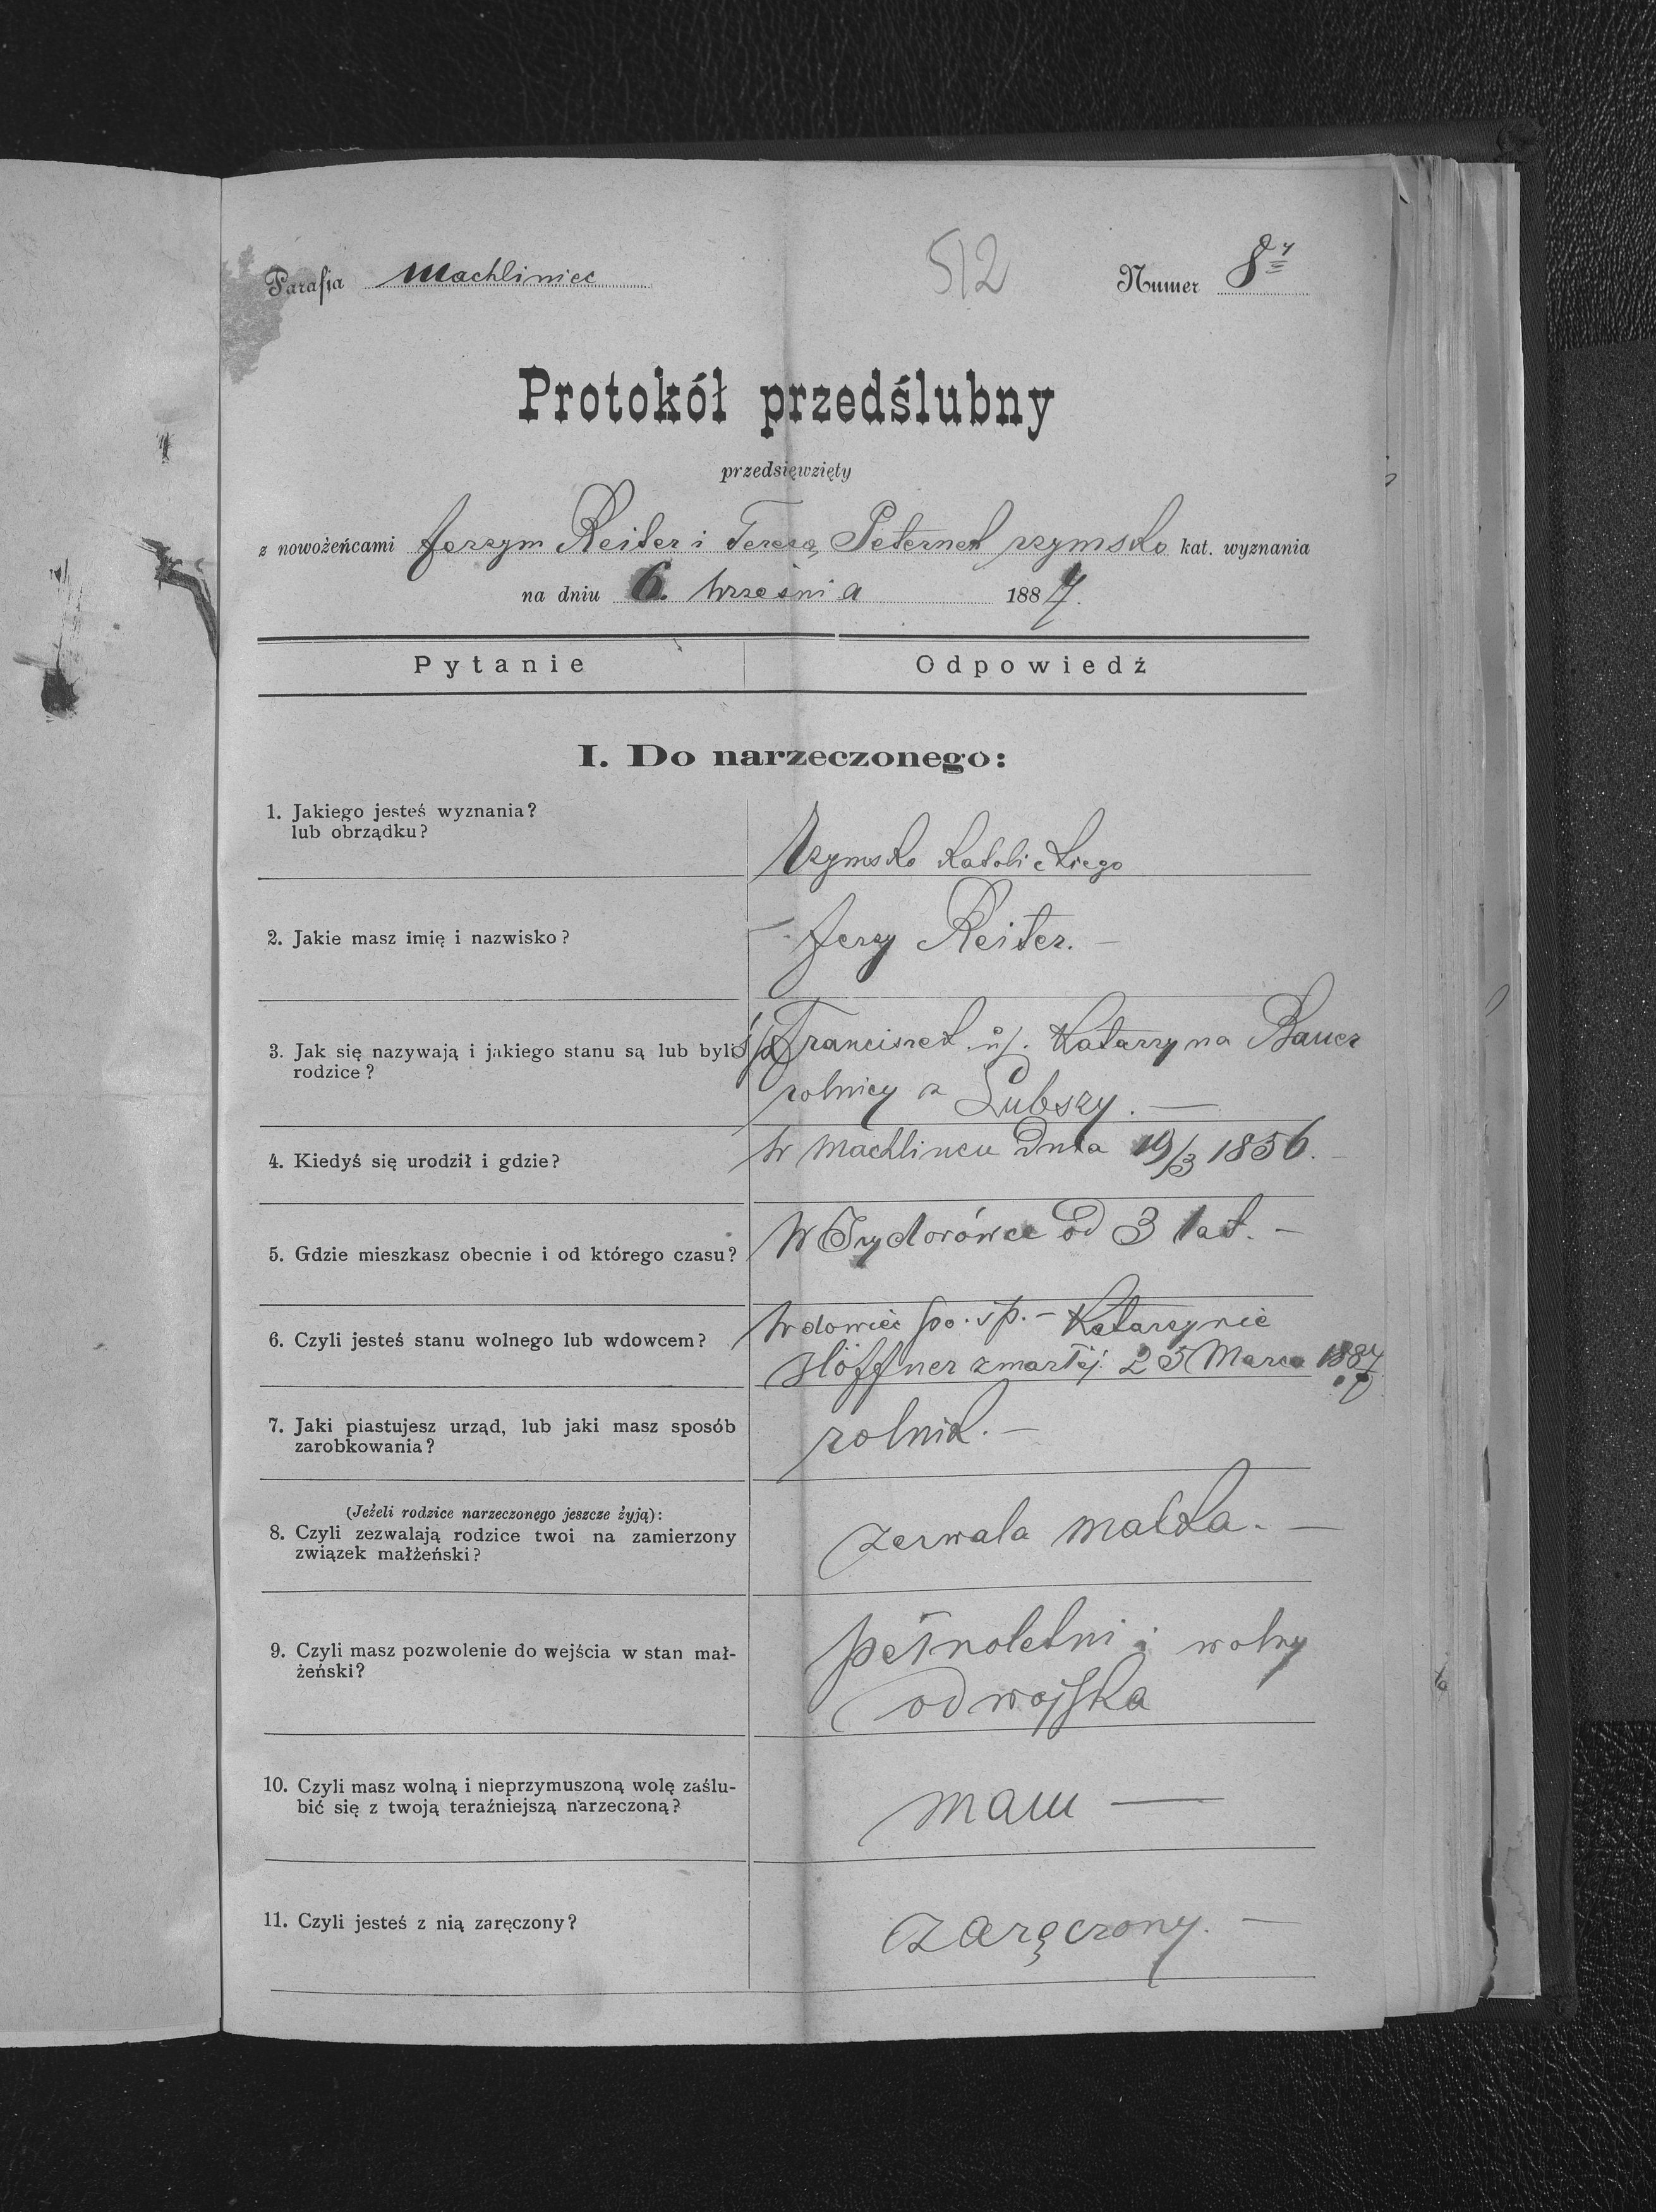 Parafia Machliniec 512 Numer 8
Protokół przedślubny
przedsięwzięty
z nowożeńcami Jerzym Reiter i Teresą Peternek rzymsko kat. wyznania
na dniu 6. września 1887.
Pytanie Odpowiedź
I. Do narzeczonego:
1. Jakiego jesteś wyznania?
lub obrządku?
Rzymsko katolickiego
2. Jakie masz imię i nazwisko? Jerzy Reiter. –
3. Jak się nazywają i jakiego stanu są lub byli
rodzice?
śp Franciszek i Katarzyna Bauer
rolnicy z Lubszy. —
4. Kiedyś się urodził i gdzie? w Machlincu Dnia 19/3 1856. –
5. Gdzie mieszkasz obecnie i od którego czasu? W Izydorówce od 3 lat. –
6. Czyli jesteś stanu wolnego lub wdowcem?
wdowiec po. śp. – Katarzynie
Höffner zmarłej 25 Marca 1887
7. Jaki piastujesz urząd, lub jaki masz sposób
zarobkowania?
rolnik. –
(Jeżeli rodzice narzeczonego jeszcze żyją):
8. Czyli zezwalają rodzice twoi na zamierzony
związek małżeński?
zezwala matka. —
9. Czyli masz pozwolenie do wejścia w stan mał-
żeński?
pełnoletni i wolny
od wojska
10. Czyli masz wolną i nieprzymuszoną wolę zaślu-
bić się z twoją teraźniejszą narzeczoną?
mam —
11. Czyli jesteś z nią zaręczony? zaręczony. –